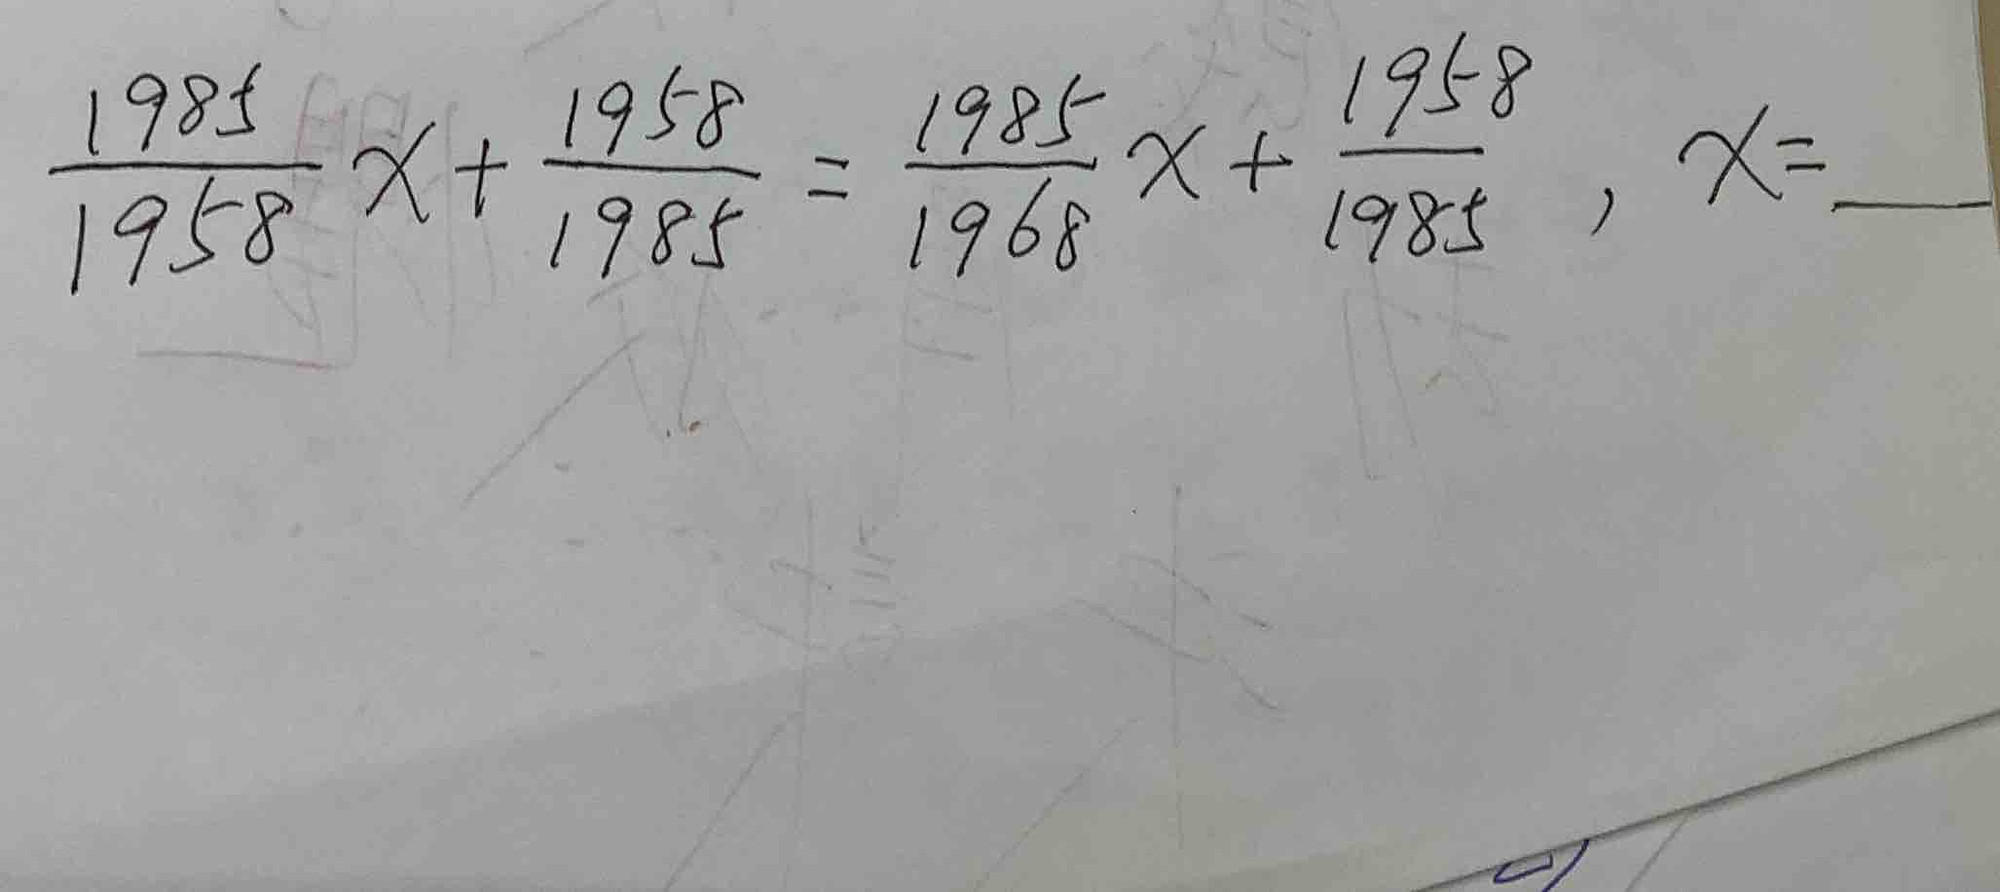 1985/1958 x + 1958/1985 = 1985/1968 x + 1958/1985 , x = ____